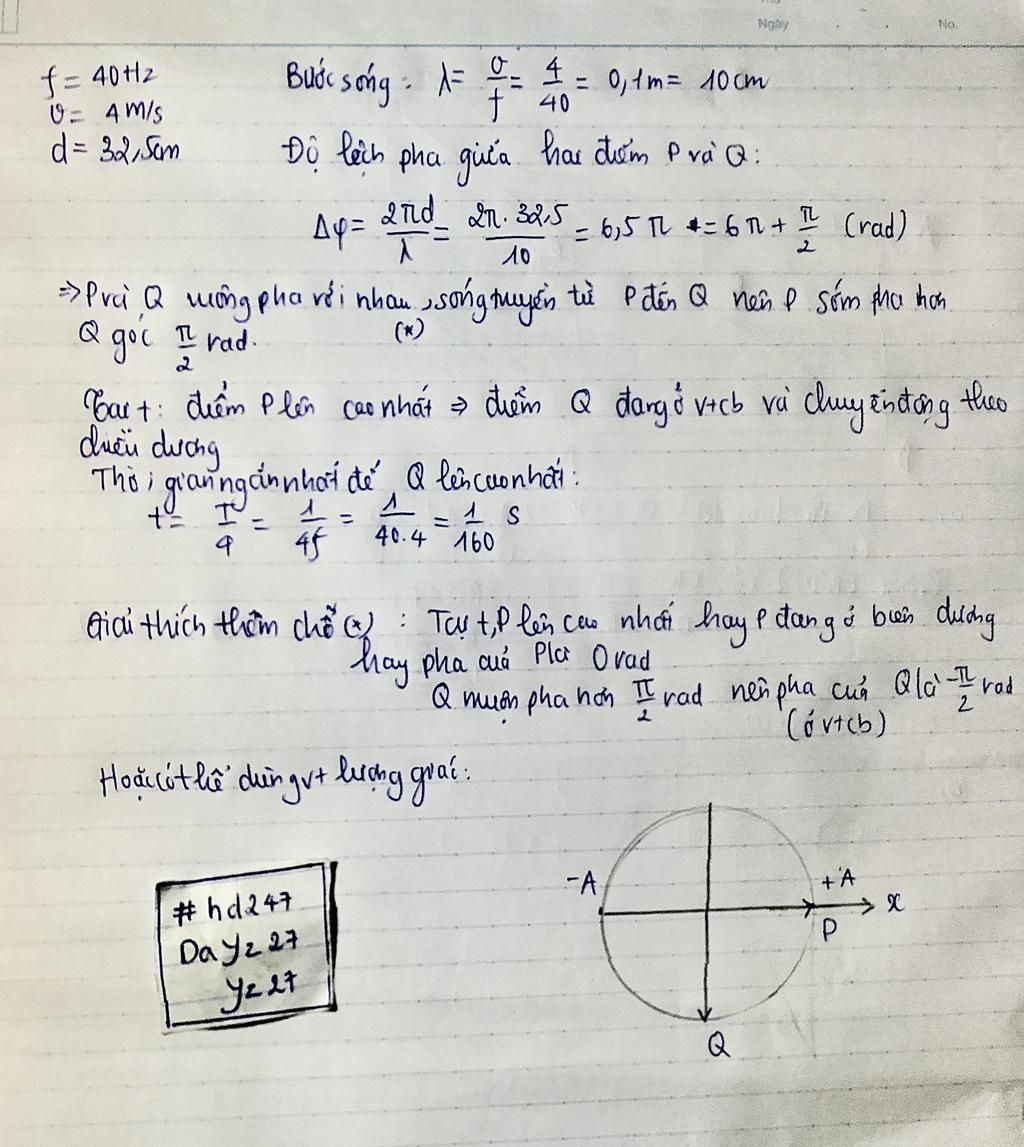 Ngày No.
f = 40Hz Bước sóng: λ = v/f = 4/40 = 0,1m = 10cm
v = 4m/s
d = 32,5cm Độ lệch pha giữa hai điểm P và Q:
Δφ = 2πd/λ = 2π.32,5/10 = 6,5π = 6π + π/2 (rad)
⇒ P và Q vuông pha với nhau, sóng truyền từ P đến Q nên P sớm pha hơn
(*)
Q góc π/2 rad.
Tại t: điểm P lên cao nhất ⇒ điểm Q đang ở vtcb và chuyển động theo
chiều dương
Thời gian ngắn nhất để Q lên cao nhất:
t = T/4 = 1/4f = 1/40.4 = 1/160 s
Giải thích thêm chỗ (*): Tại t, P lên cao nhất hay P đang ở biên dương
hay pha của P là 0 rad
Q muộn pha hơn π/2 rad nên pha của Q là -π/2 rad
(ở vtcb)
Hoặc có thể dùng vt lượng giác:
-A +A x
P
Q
#hd247
Dayz27
yz27